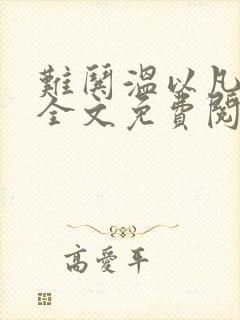 難鬨溫以凡
全文免費閱
高愛平